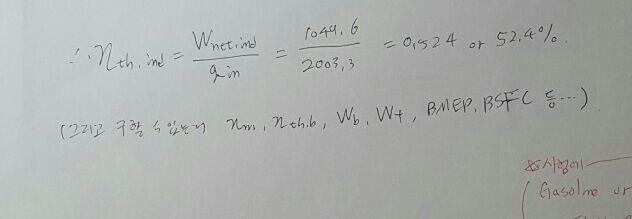 ∴ η th, ind = W net, ind / q in = 1049.6 / 2003.3 = 0.524 or 52.4%.
(그리고 구할 수 있는거 ηm, ηth.b, Wb, Wf, BMEP, BSFC 등...)
※시험에
(Gasoline or